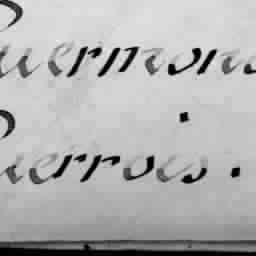 uermon
uerrois.